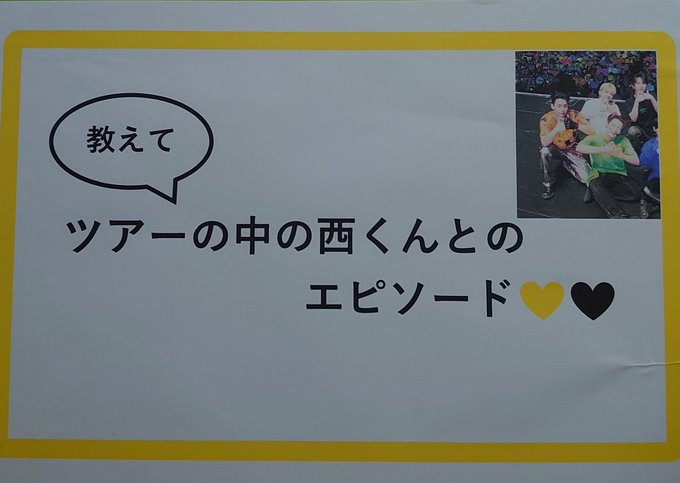 教えて
ツアーの中の西くんとの
エピソード💛🖤